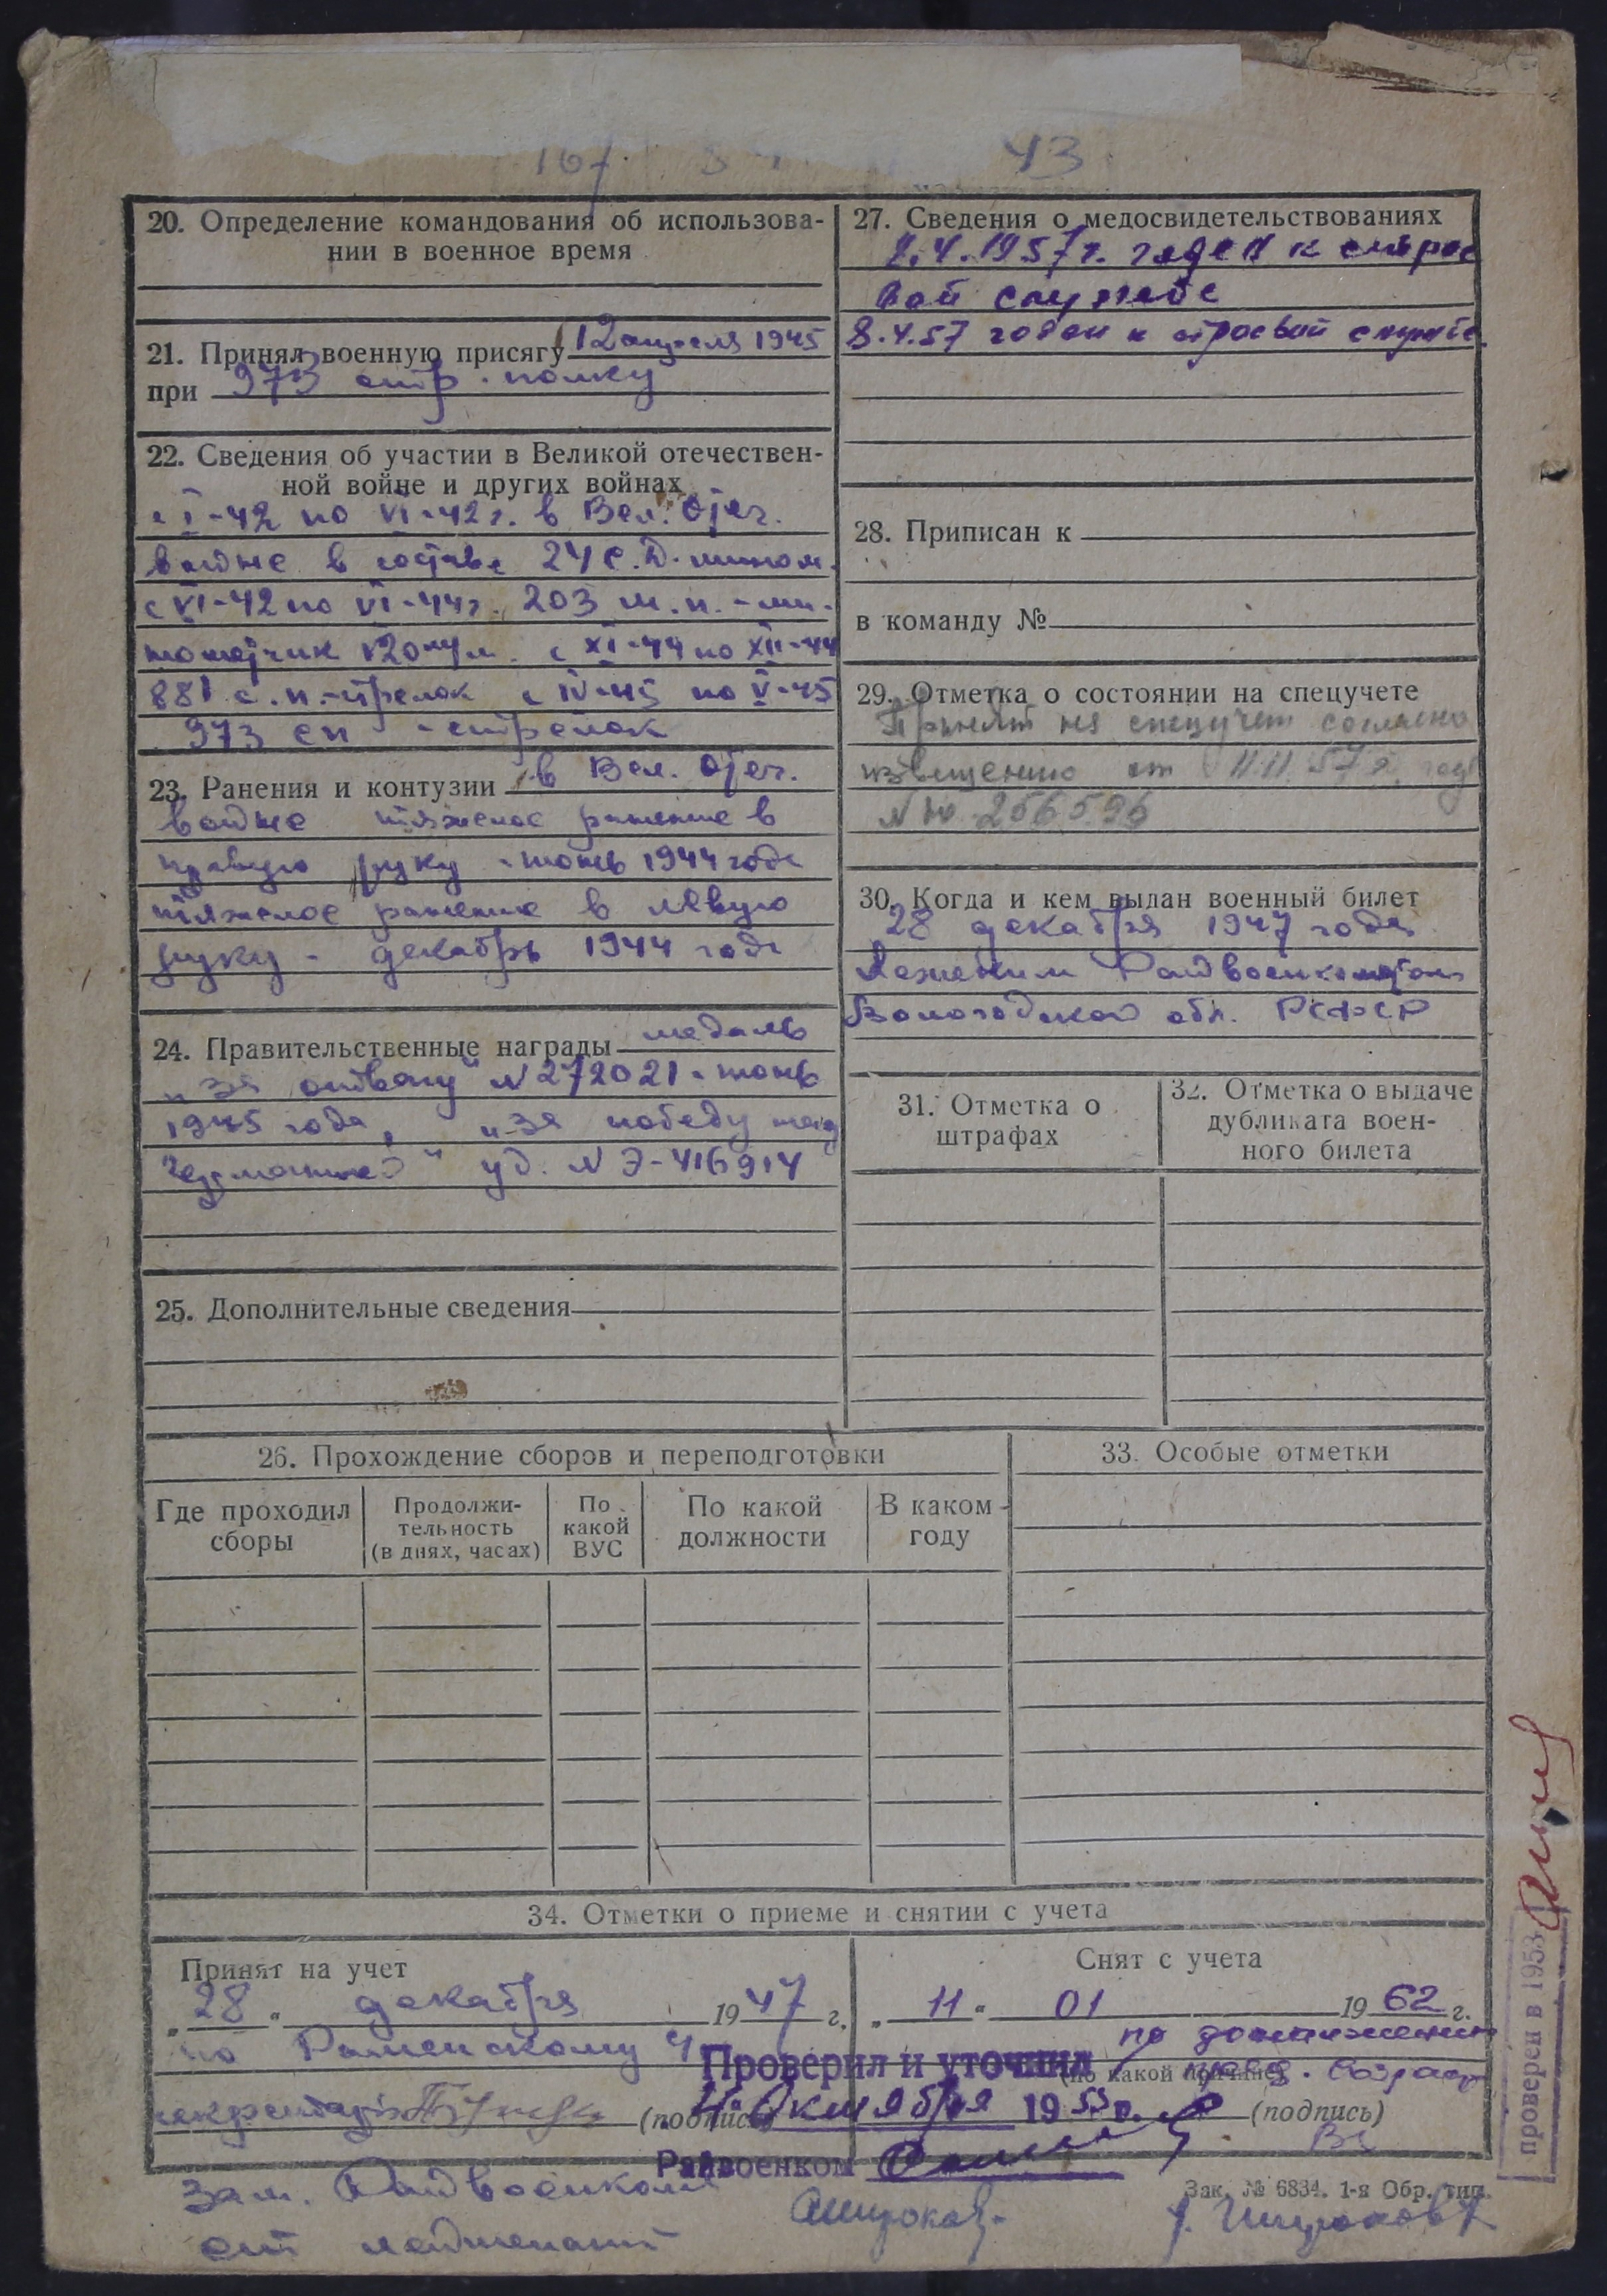 167 43
20. Определение командования об использова-
нии в военное время
21. Принял военную присягу 12 апреля 1945
при 973 стр. полку
22. Сведения об участии в Великой отечествен-
ной войне и других войнах
с I-42 по VI-42 г. в Вел. Отеч.
войне в составе 24 с.д. мином.
с VI-42 по VI-44 г. 203 м.п. - ми-
нометчик 120 мм. с XI-44 по XII-44
881 с.п.-стрелок с IV-45 по V-45
973 сп - стрелок
23. Ранения и контузии в Вел. Отеч.
войне тяжелое ранение в
правую руку - июнь 1944 года
тяжелое ранение в левую
руку - декабрь 1944 года
24. Правительственные награды медаль
„За отвагу" N 272021 - июнь
1945 года, „За победу над
Германией" уд. N Э-416914
25. Дополнительные сведения
27. Сведения о медосвидетельствованиях
годен к строе
вой службе
8.4.57 годен к строевой службе
28. Приписан к
в команду №
29. Отметка о состоянии на спецучете
Принят на спецучет согласно
извещению от 11.11.57 года
N 256596
30. Когда и кем выдан военный билет
28 декабря 1947 года
Райвоенкоматом
Вологодской обл. РСФСР
31. Отметка о
штрафах
32. Отметка о выдаче
дубликата воен-
ного билета
26. Прохождение сборов и переподготовки
Где проходил
сборы
Продолжи-
тельность
(в днях, часах)
По
какой
ВУС
По какой
должности
В каком
году
33. Особые отметки
34. Отметки о приеме и снятии с учета
Принят на учет
„28" декабря 1947 г.
по
(подпись)
Снят с учета
„11" 01 1962 г.
по достижении
(по какой причине) пред. возраст
(подпись)
Проверил и уточнил
4 Октября 1955 г.
Райвоенком
Зам. Райвоенкома
ст лейтенант
Широков
Зак. № 6834. 1-я Обр. тип.
Широков
проверен в 1953